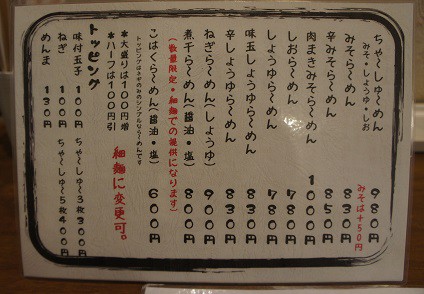 ちゃ〜しゅ〜めん 980円
みそ・しょうゆ・しお みそは+50円
みそら〜めん 830円
辛みそら〜めん 850円
肉まきみそら〜めん 1000円
しおら〜めん 780円
しょうゆら〜めん 780円
味玉しょうゆら〜めん 830円
辛しょうゆら〜めん 830円
ねぎら〜めん(しょうゆ) 900円
煮干ら〜めん(醤油・塩) 800円
(数量限定・細麺での提供になります)
こはくら〜めん(醤油・塩) 600円
トッピングはネギのみのシンプルなら〜めんです
*大盛りは100円増
*ハーフは100円引
細麺に変更可。
トッピング
味付玉子 100円 ちゃ〜しゅ〜3枚300円
ねぎ 100円 ちゃ〜しゅ〜5枚400円
めんま 130円